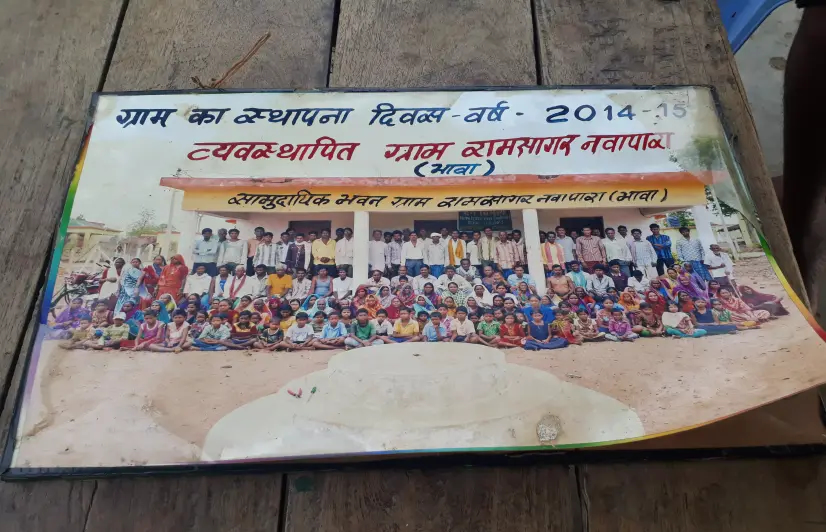 ग्राम का स्थापना दिवस - वर्ष - 2014-15
व्यवस्थापित ग्राम रामसागर नवापारा
(भावा)
सामुदायिक भवन ग्राम रामसागर नवापारा (भावा)